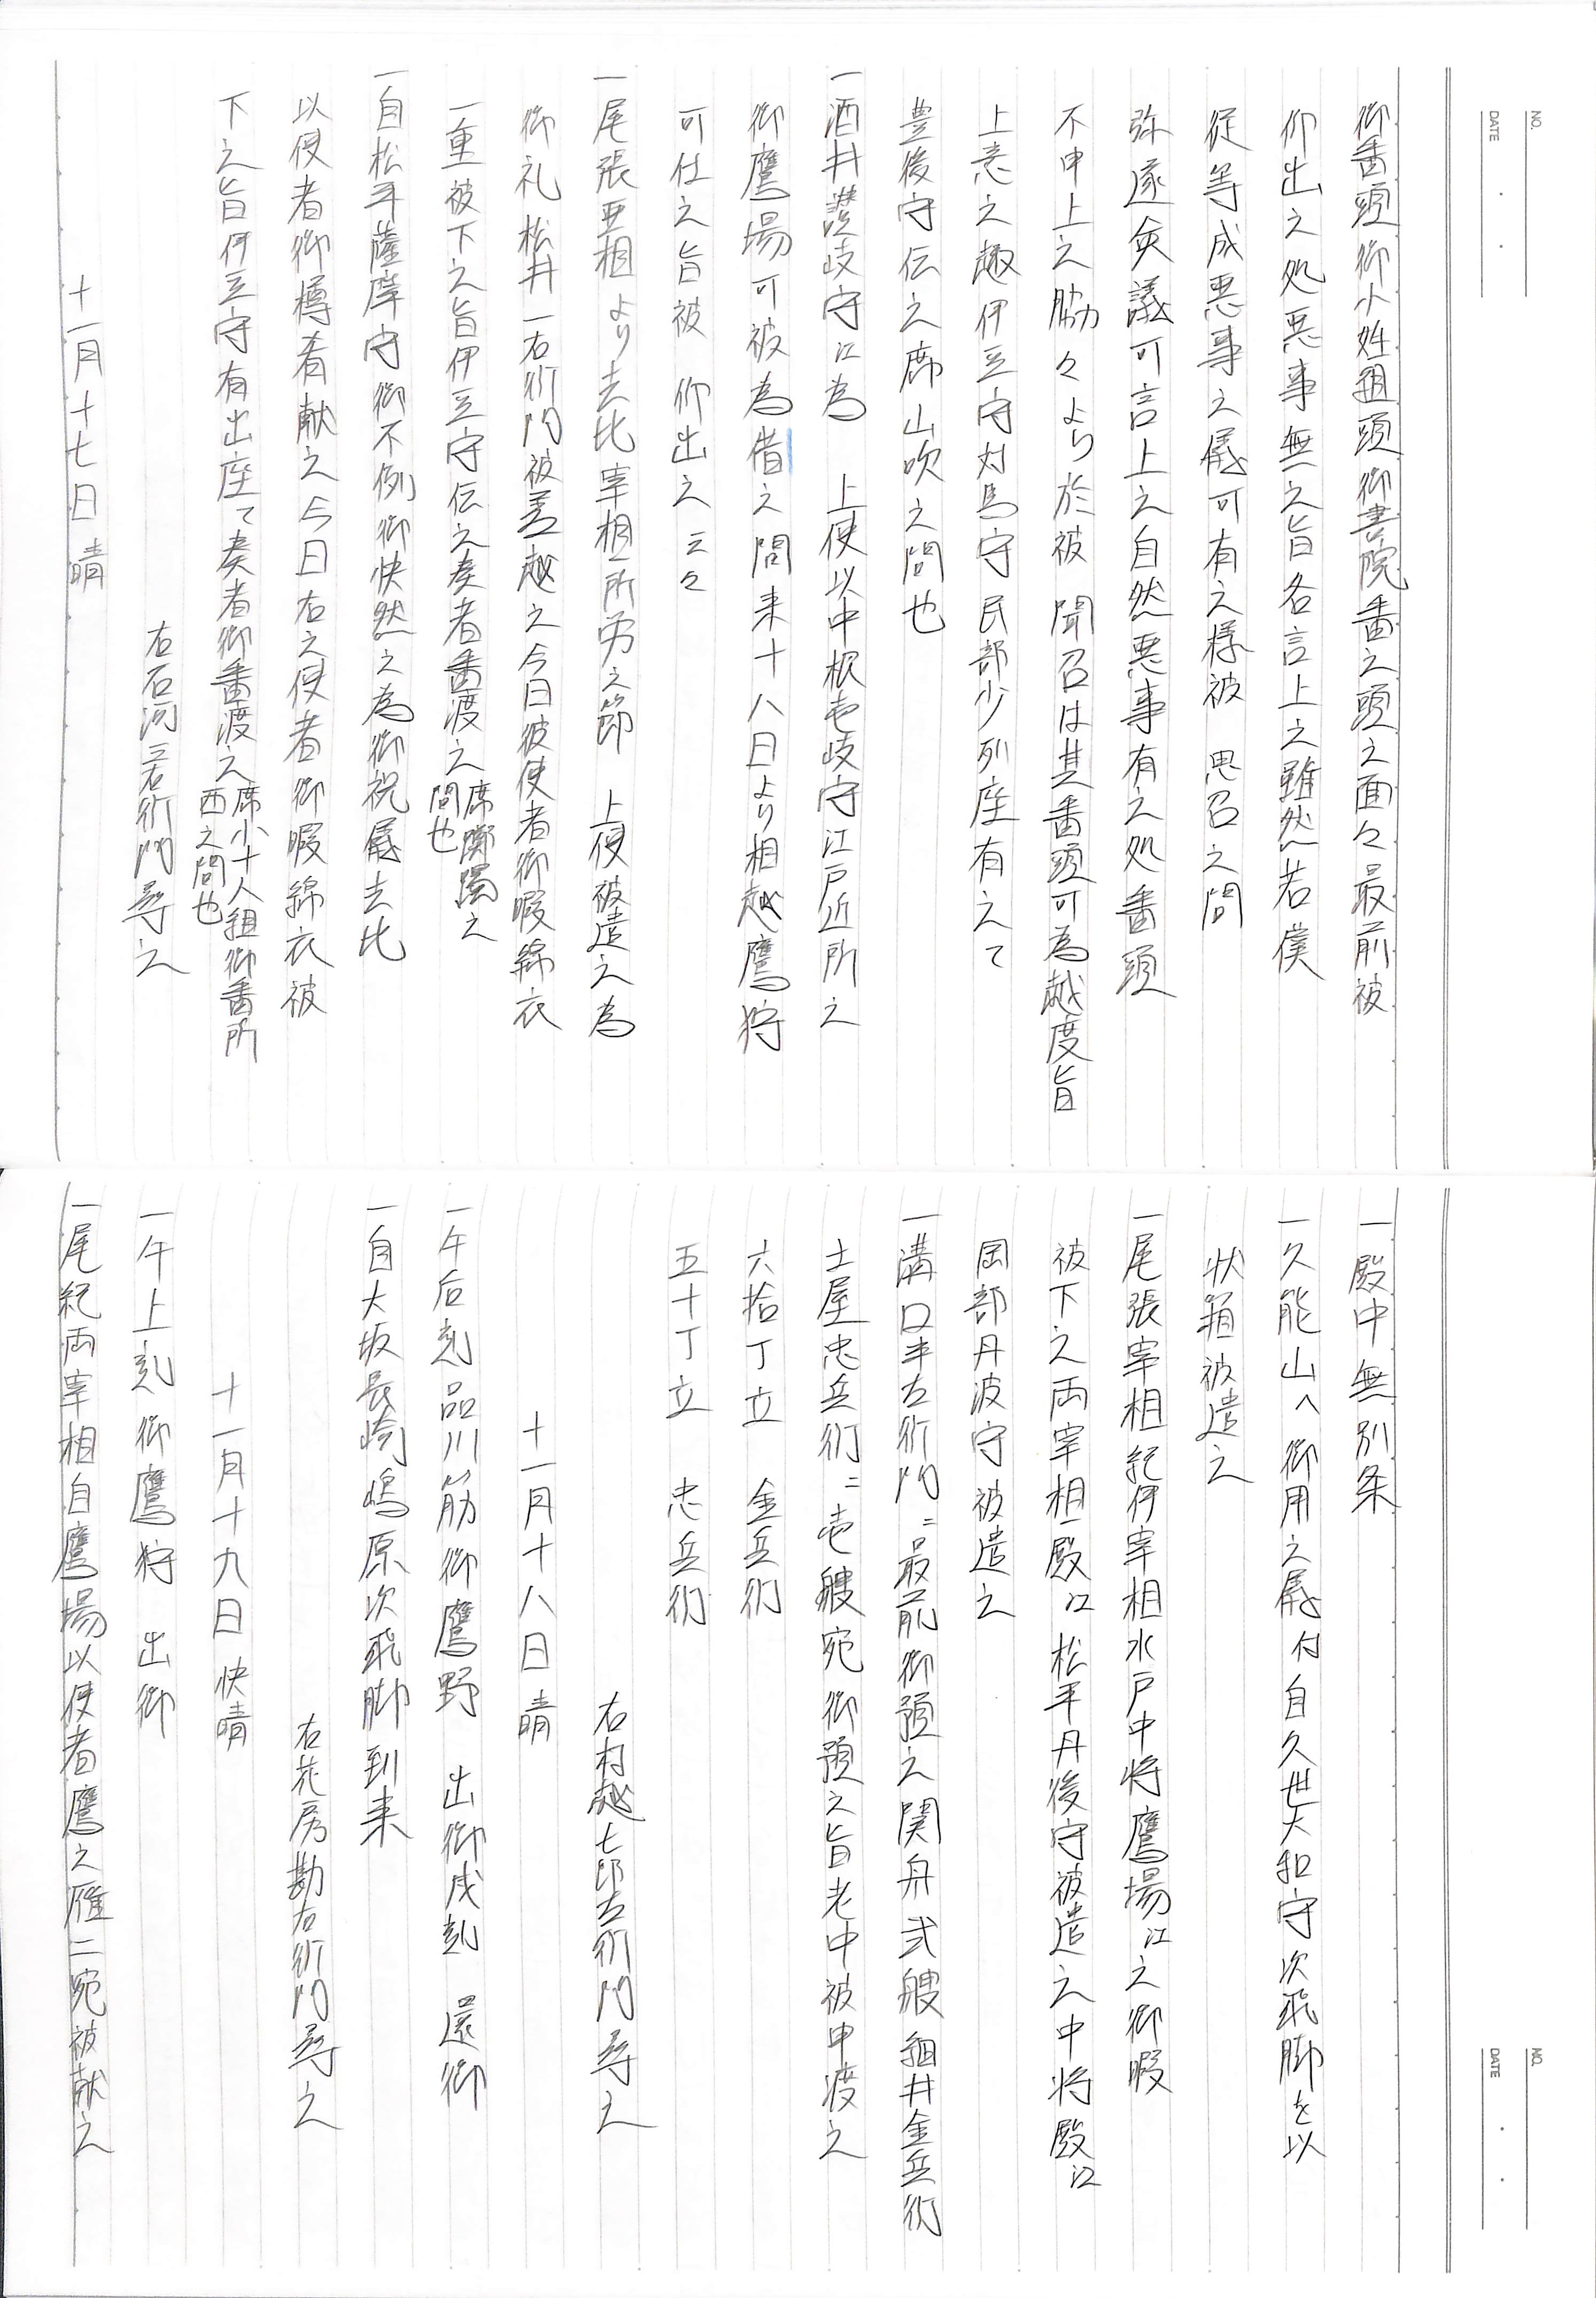 NO.
DATE
御番頭御小姓組頭御書院番之頭之面々最前被
仰出之処悪事無之旨各言上之雖然若僕
従等成悪事之儀可有之様被 思召之間
弥遂僉議可言上之自然悪事有之処番頭
不申上之脇々より於被 聞召は其番頭可為越度旨
上意之趣伊豆守対馬守民部少列座有之て
豊後守伝之席山吹之間也
一酒井讃岐守江為 上使以中根壱岐守江戸近所之
御鷹場可被為借之間来十八日より相越鷹狩
可仕之旨被 仰出之云々
一尾張亜相より去比宰相所労之節 上使被遣之為
御礼松井一右衛門被差越之今日彼使者御暇綿衣
一重被下之旨伊豆守伝之奏者番渡之席躑躅之
間也
一自松平薩摩守御不例御快然之為御祝儀去比
以使者御樽肴献之今日右之使者御暇綿衣被
下之旨伊豆守有出座て奏者御番渡之席小十人組御番所
西之間也
右石河三右衛門尋之
十一月十七日晴
一殿中無別条
一久能山へ御用之儀付自久世大和守次飛脚を以
状箱被遣之
一尾張宰相紀伊宰相水戸中将鷹場江之御暇
被下之両宰相殿江松平丹後守被遣之中将殿江
岡部丹波守被遣之
一溝口半左衛門ニ最前御預之関舟弐艘細井金兵衛
土屋忠兵衛ニ壱艘宛御預之旨老中被申渡之
六拾丁立 金兵衛
五十丁立 忠兵衛
右村越七郎左衛門尋之
十一月十八日晴
一午后刻品川筋御鷹野 出御戌刻 還御
一自大坂長崎嶋原次飛脚到来
右花房勘右衛門尋之
十一月十九日快晴
一午上刻御鷹狩 出御
一尾紀両宰相自鷹場以使者鷹之雁二宛被献之
NO.
DATE